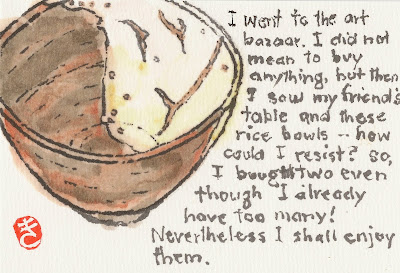 I went to the art
bazaar. I did not
mean to buy
anything, but then
I saw my friend's
table and these
rice bowls -- how
could I resist? So,
I bought two even
though I already
have too many!
Nevertheless I shall enjoy
them.